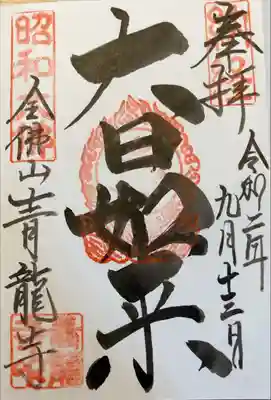 奉拝
令和二年
九月十三日
大日如来
昭和大佛
全佛山青龍寺